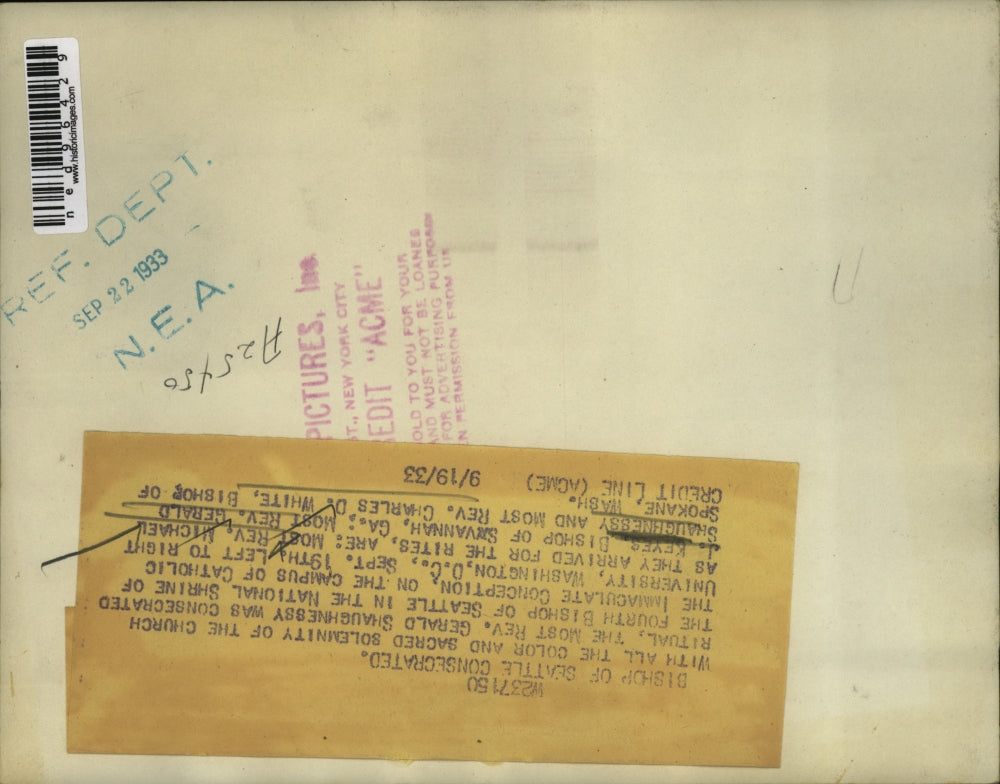 ned96429
www.historicimages.com
REF. DEPT.
SEP 22 1933
N.E.A.
A25450
PICTURES, Inc.
ST., NEW YORK CITY
EDIT "ACME"
OLD TO YOU FOR YOUR
AND MUST NOT BE LOANED
FOR ADVERTISING PURPOSES
N PERMISSION FROM US
W237150
BISHOP OF SEATTLE CONSECRATED.
WITH ALL THE COLOR AND SACRED SOLEMNITY OF THE CHURCH
RITUAL, THE MOST REV. GERALD SHAUGHNESSY WAS CONSECRATED
THE FOURTH BISHOP OF SEATTLE IN THE NATIONAL SHRINE OF
THE IMMACULATE CONCEPTION, ON THE CAMPUS OF CATHOLIC
UNIVERSITY, WASHINGTON, D.C., SEPT. 19TH. LEFT TO RIGHT
AS THEY ARRIVED FOR THE RITES, ARE: MOST REV. MICHAEL
J. KEYES, BISHOP OF SAVANNAH, GA.; MOST REV. GERALD
SHAUGHNESSY AND MOST REV. CHARLES D. WHITE, BISHOP OF
SPOKANE, WASH.
CREDIT LINE (ACME) 9/19/33
U